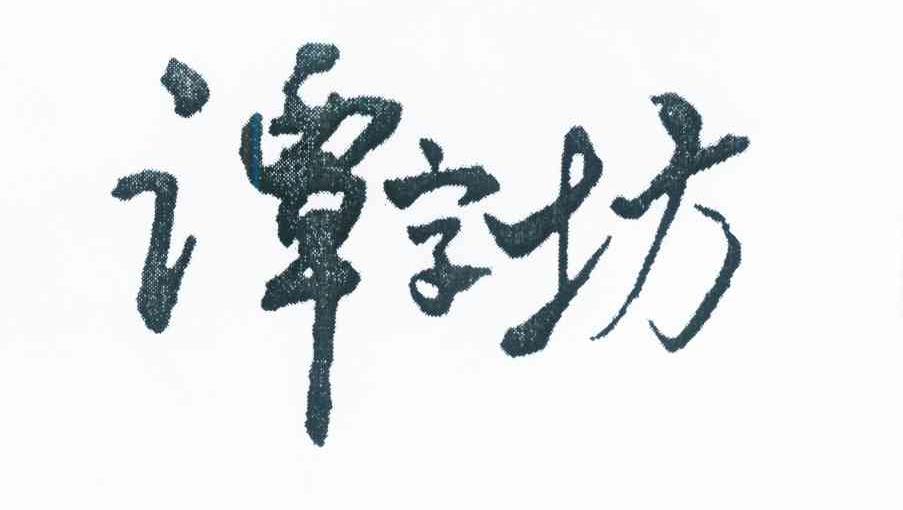 谭字坊